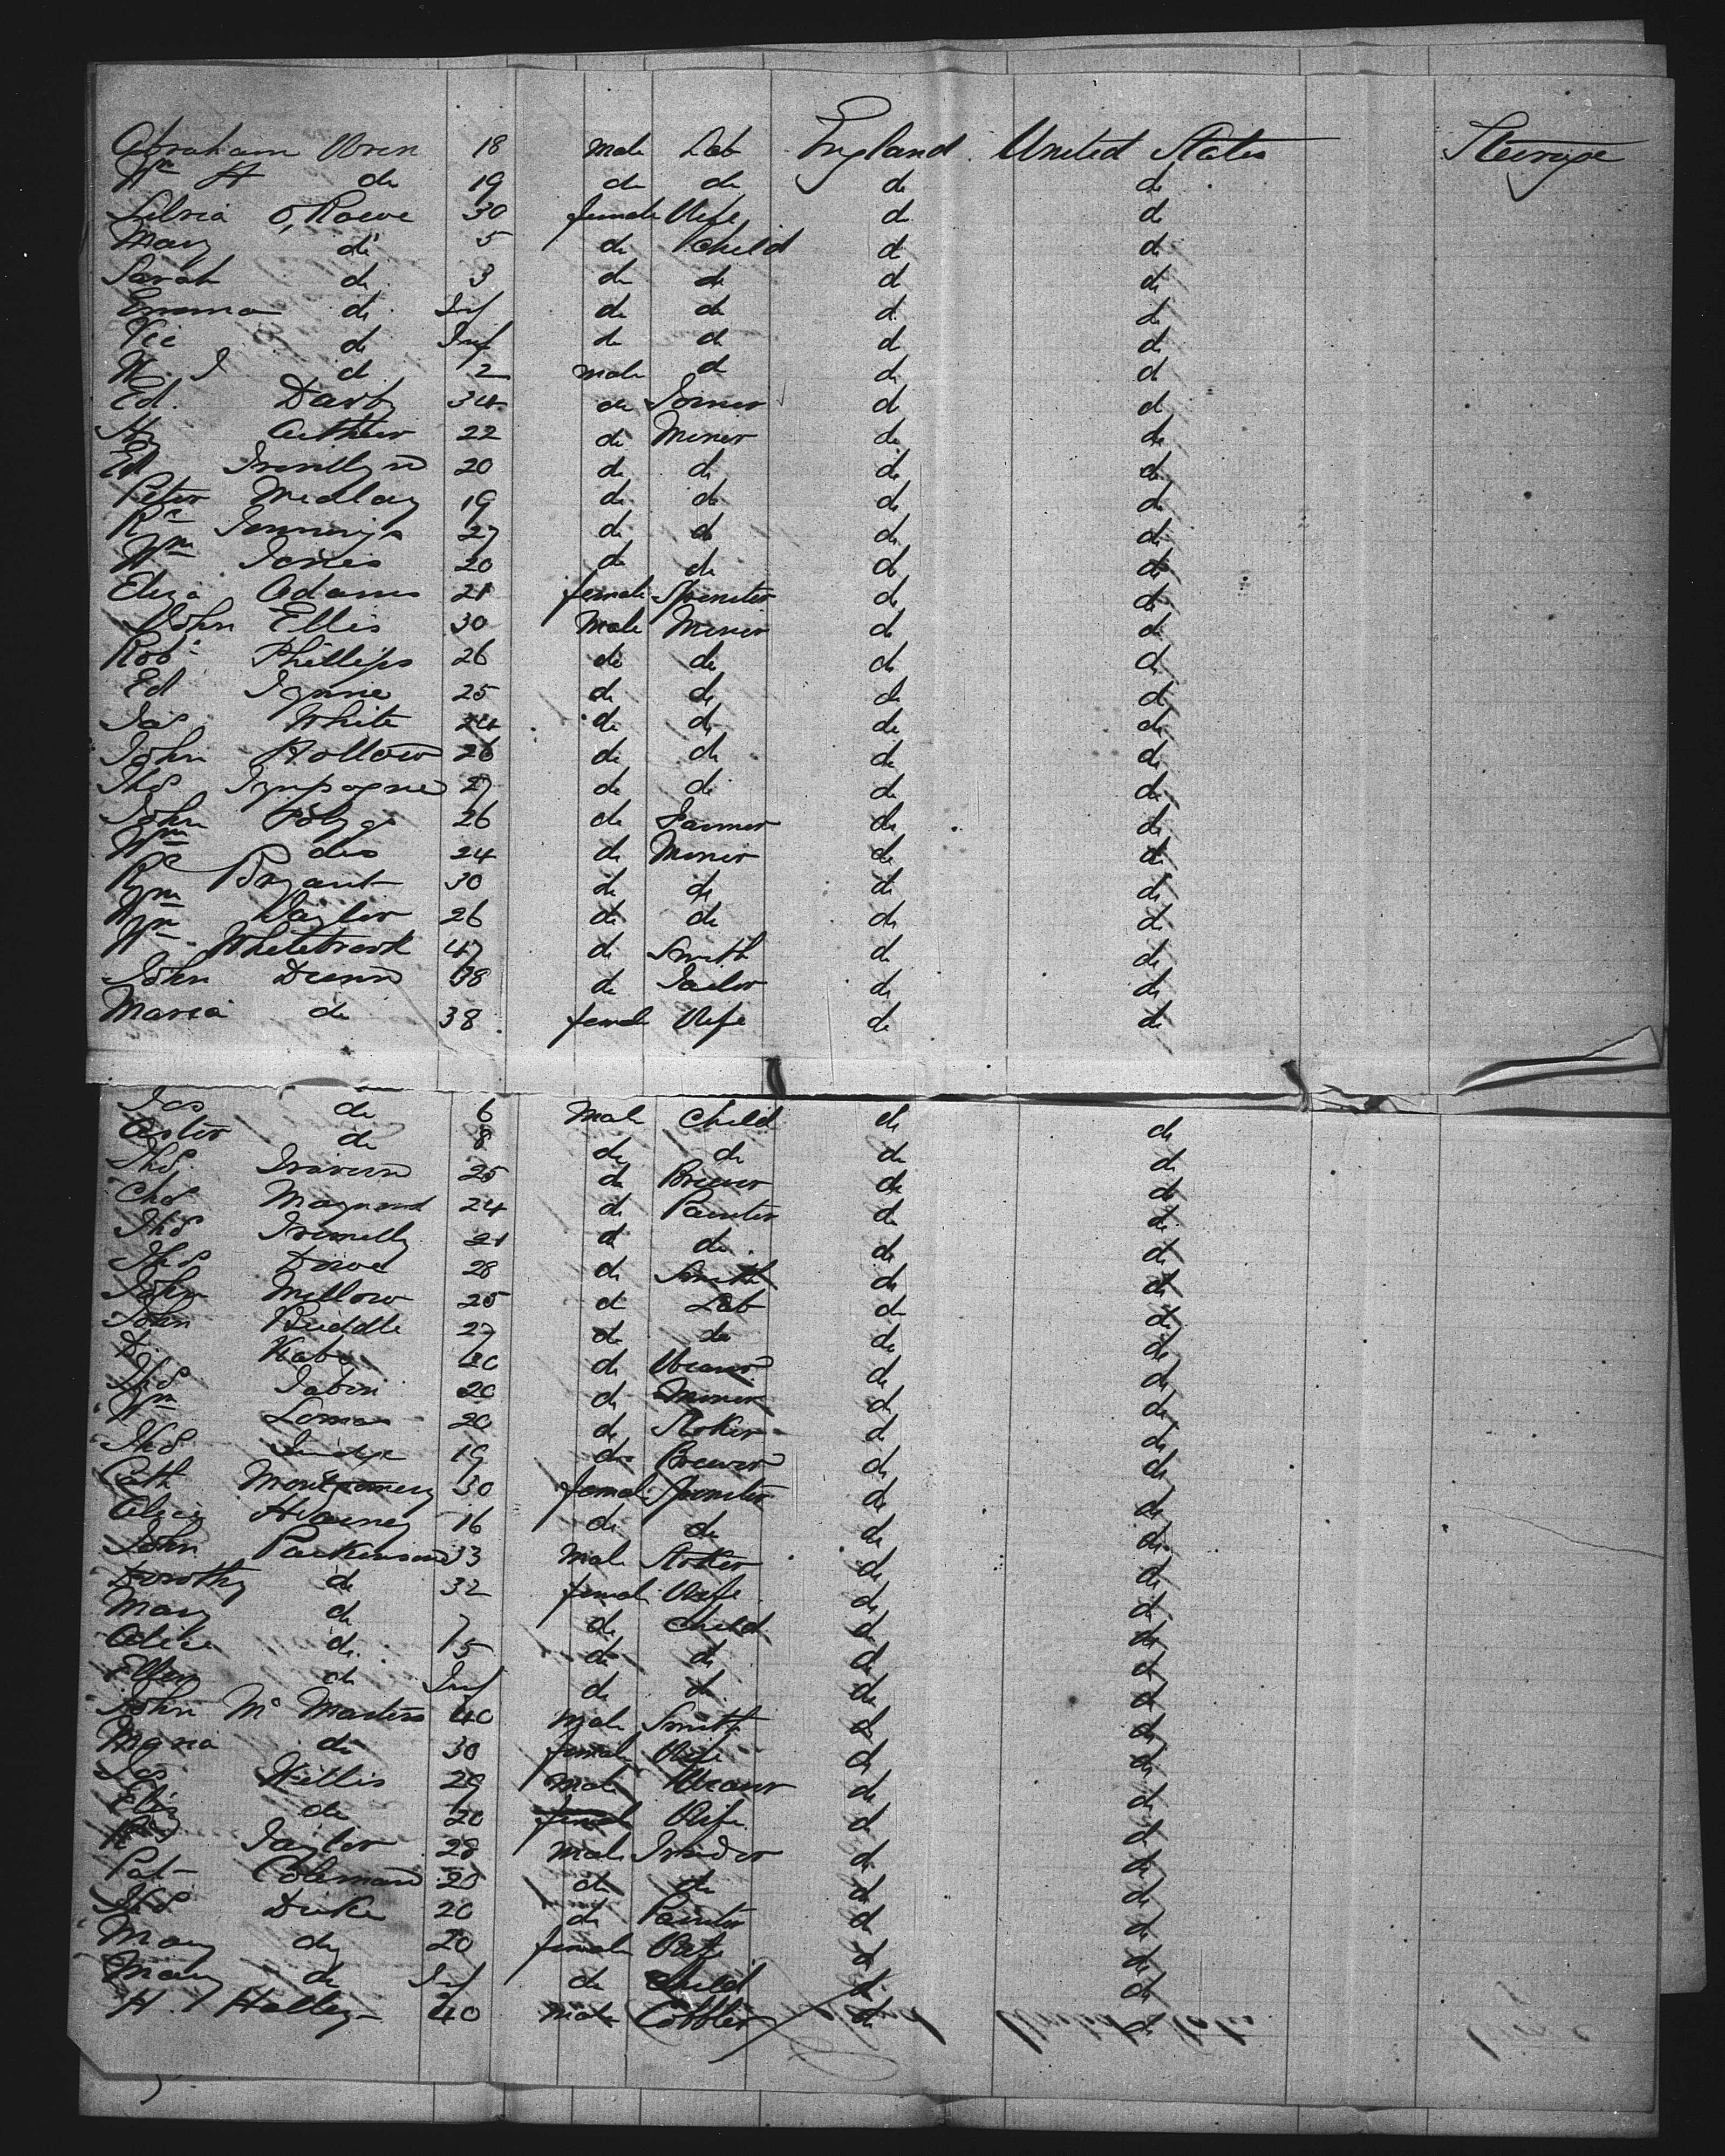 Abraham Uren 18 Male Lab England United States Steerage
Wm H do 19 do do do do
30 female Wife do do
Mary do 5 do Child do do
Sarah do 3 do do do do
Emma do Inf do do do do
Vic do Inf do do do do
W. J do 2 male do do do
Ed. Darby 34 do do do
Hy Arthur 22 do Miner do do
Ed 20 do do do do
Peter Medlay 19 do do do do
Rd Jennings 27 do do do do
Wm Jones 20 do do do do
Eliza Adams 21 female Spinster do do
John Ellis 30 Male Miner do do
Robt Phillips 26 do do do do
Ed 25 do do do do
Jas White 24 do do do do
John Hollow 26 do do do do
Thos 27 do do do do
John 26 do Farmer do do
Wm do 24 do Miner do do
Rd Bryant 30 do do do do
Wm 26 do do do do
Wm 47 do Smith do do
John Dunn 38 do Tailor do do
Maria do 38 female Wife do do
Jas do 6 Male Child do do
do 8 do do do do
Thos 25 do Brewer do do
Chs 24 do Painter do do
Thos 21 do do do do
Thos 28 do Smith do do
John Mellow 25 do Lab do do
John Buddle 27 do do do do
20 do Weaver do do
Thos 20 do Miner do do
Wm Lomas 20 do Stoker do do
Thos Judge 19 do Brewer do do
Cath Montgomery 30 female Spinster do do
16 do do do do
John Parkinson 33 Male Stoker do do
Dorothy do 32 female Wife do do
Mary do 7 do Child do do
Alice do 5 do do do do
Ellen do Inf do do do do
John Mc Masters 40 Male Smith do do
Maria do 30 female Wife do do
Jas Willis 29 Male Weaver do do
Eliz do 20 female Wife do do
Taylor 28 Male do do
Pat Coleman 20 do do do do
Thos Duke 20 do Painter do do
Mary do 20 female Wife do do
Mary do Inf do Child do do
H. Halley 40 Male Cobbler do do